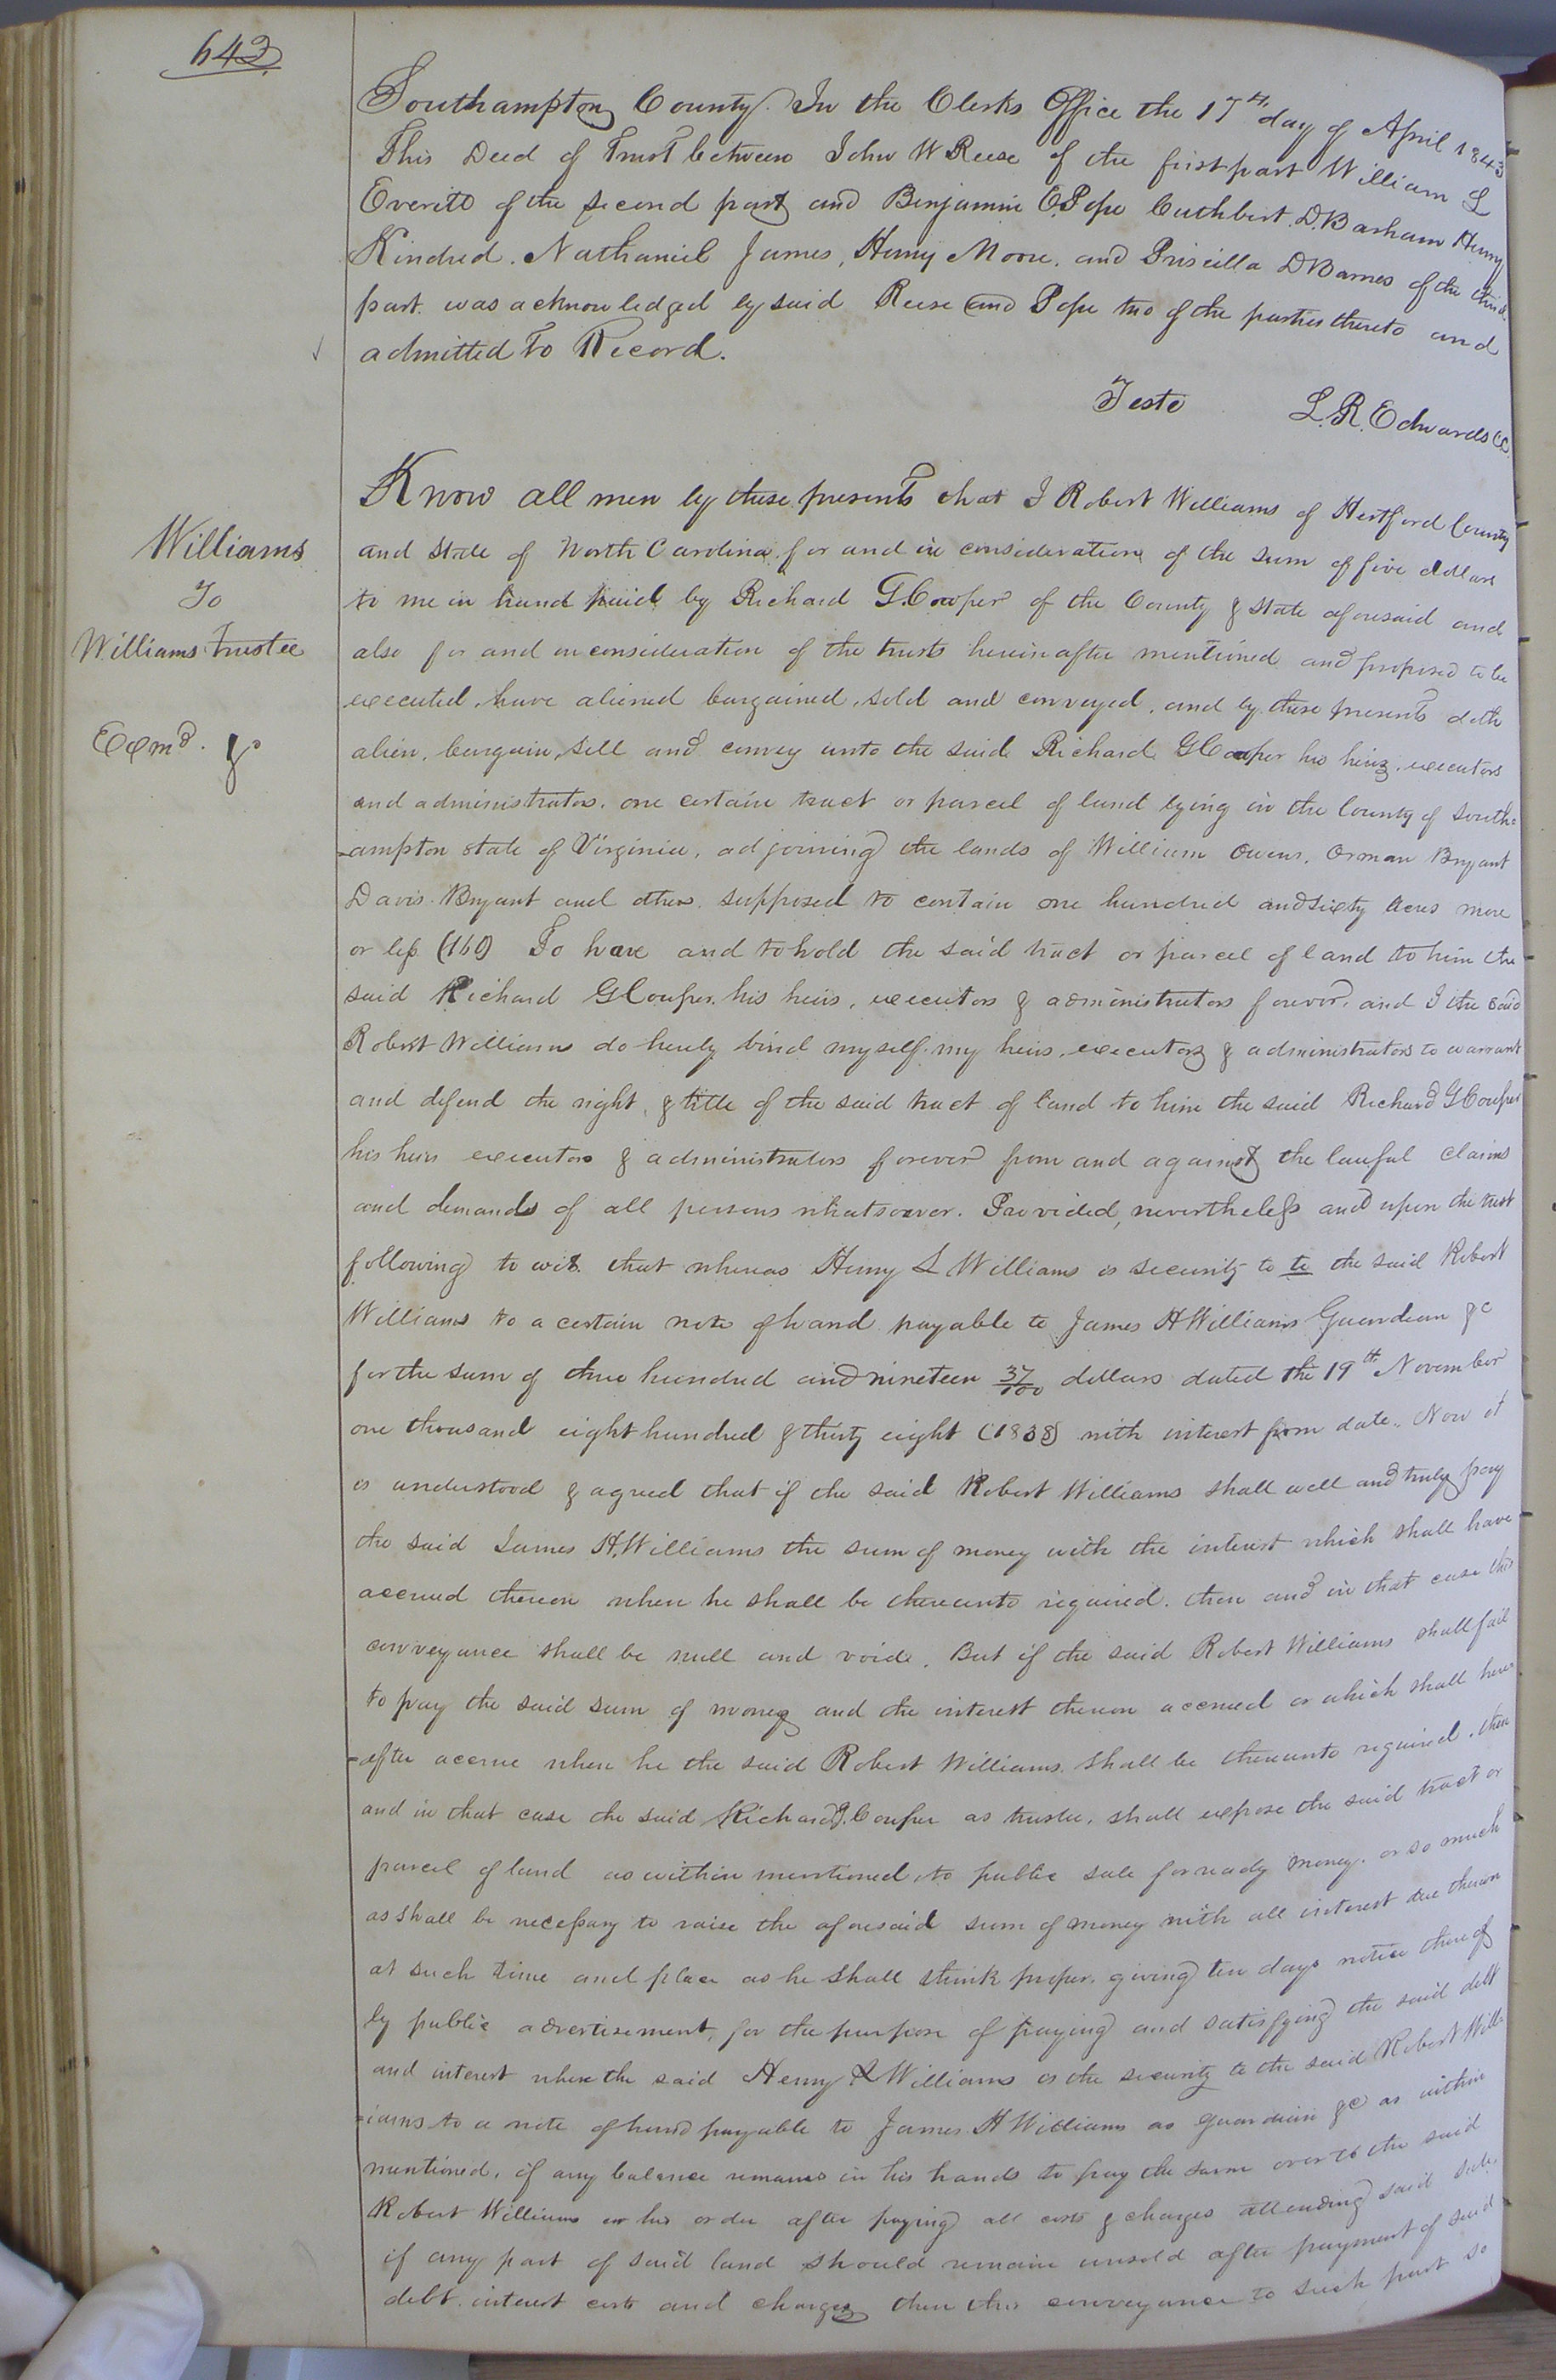 642
Southampton County. In the Clerks Office the 17th day of April 1843
This Deed of Trust between John W Reese of the first part William L
Everitt of the second part and Benjamin E. Pope Cuthbert. D. Barham Henry
Kindred. Nathaniel James, Henry Moore. and Priscilla D Barnes of the third
part. was acknowledged by said Reese and Pope two of the parties thereto and
admitted to Record.
Teste L. R. Edwards CC.
Williams
To
Williams Trustee
Exmd. &c
Know all men by these presents that I Robert Williams of Hertford County
and state of North Carolina, for and in consideration of the sum of five dollars
to me in hand paid by Richard G. Cowper of the County & state aforesaid and
also for and in consideration of the trusts hereinafter mentioned and proposed to be
executed, have aliened bargained, sold and conveyed, and by these presents doth
alien, bargain, sell and convey unto the said Richard G Cowper his heirs, executors
and administrators, one certain tract or parcel of land lying in the County of South=
=ampton state of Virginia, adjoining the lands of William Owens, Orman Bryant
Davis Bryant and others supposed to contain one hundred and sixty Acres more
or less (160) To have and to hold the said tract or parcel of land to him the
said Richard G Cowper, his heirs, executors & administrators forever, and I the said
Robert Williams do hereby bind myself. my heirs, executors & administrators to warrant
and defend the right, & title of the said tract of land to him the said Richard G Cowper
his heirs executors & administrators forever from and against the lawful claims
and demands of all persons whatsoever. Provided, nevertheless and upon the trust
following to wit. that whereas Henry L Williams is security to to the said Robert
Williams to a certain note of hand payable to James H Williams Guardian &c
for the sum of three hundred and nineteen 37/100 dollars dated the 19th November
one thousand eight hundred & thirty eight (1838) with interest from date.. Now it
is understood & agreed that if the said Robert Williams shall well and truly pay
the said James H. Williams the sum of money with the interest which shall have
accrued thereon when he shall be thereunto required. then and in that case this
conveyance shall be null and void. But if the said Robert Williams shall fail
to pay the said sum of money and the interest thereon accrued or which shall here
=after accrue when he the said Robert Williams. shall be thereunto required. then
and in that case the said Richard G. Cowper as trustee, shall expose the said tract or
parcel of land as within mentioned, to public sale for ready money. or so much
as shall be necessary to raise the aforesaid sum of money with all interest due thereon
at such time and place as he shall think proper, giving ten days notice thereof
by public advertisement, for the purpose of paying and satisfying the said debt
and interest where the said Henry L Williams is the security to the said Robert Will
=iams to a note of hand payable to James H Williams as guardian &c as within
mentioned, if any balance remains in his hands to pay the same over to the said
Robert Williams or his order after paying all costs & charges attending said sale.
if any part of said land should remain unsold after payment of said
debt interest costs and charges then this conveyance to such part so